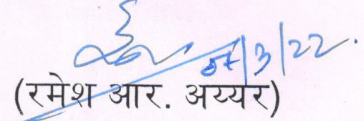 /3/22.
(रमेश आर. अय्यर)